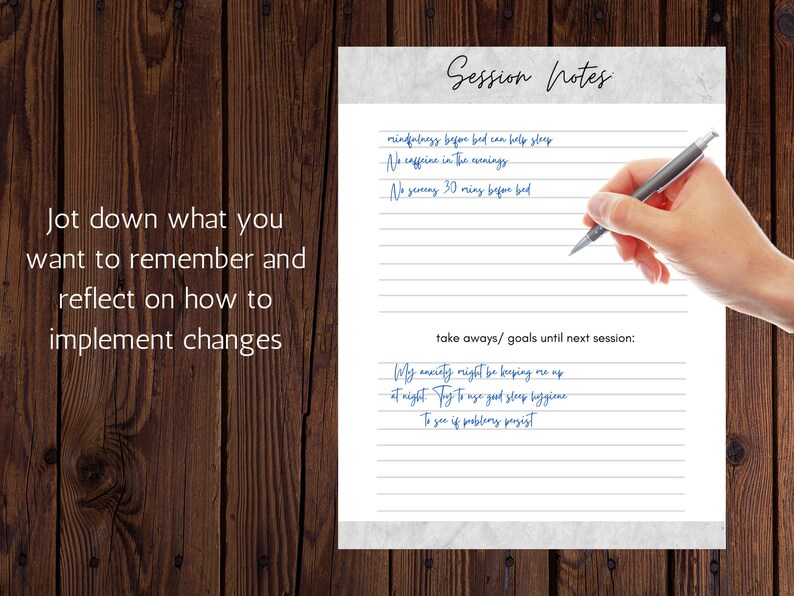 Session Notes
mindfulness before bed can help sleep
No caffeine in the evenings
No screens 30 mins before bed
Jot down what you
want to remember and
reflect on how to
implement changes
take aways/ goals until next session:
My anxiety might be keeping me up
at night. Try to use good sleep hygiene
to see if problems persist